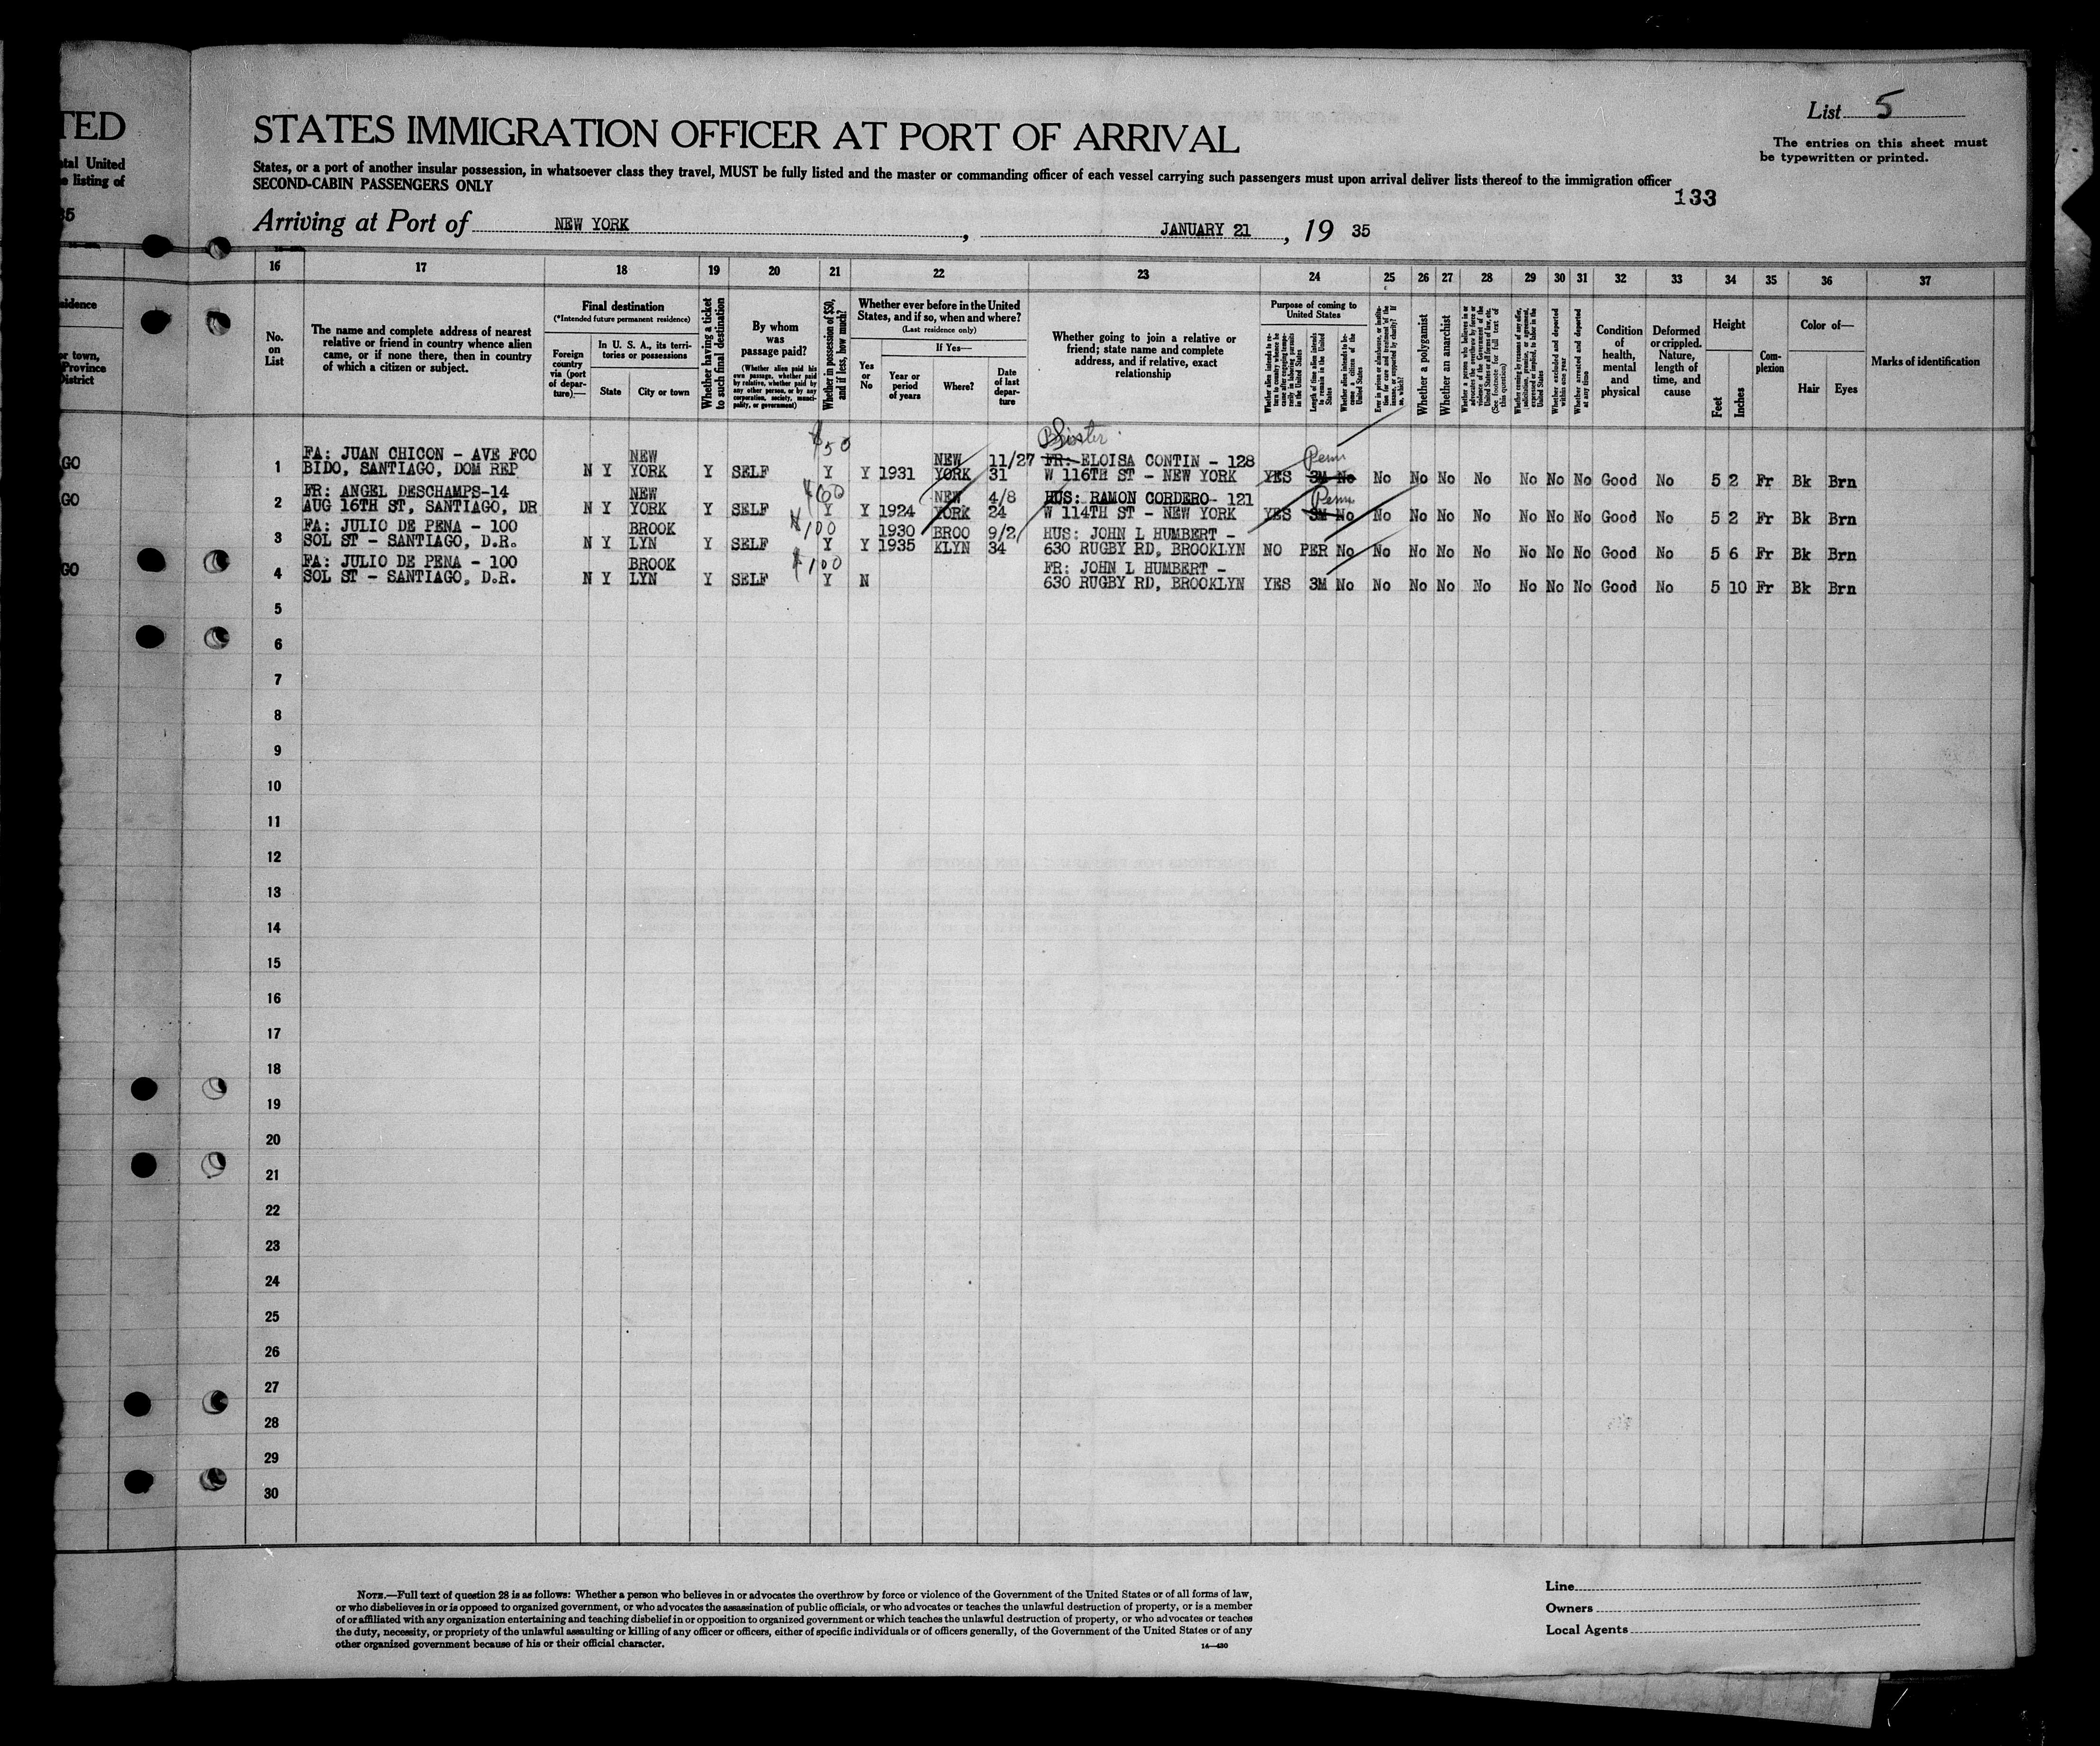 TED
STATES IMMIGRATION OFFICER AT PORT OF ARRIVAL
List 5
The entries on this sheet must
be typewritten or printed.
tal United
listing of
States, or a port of another insular possession, in whatsoever class they travel, MUST be fully listed and the master or commanding officer of each vessel carrying such passengers must upon arrival deliver lists thereof to the immigration officer
SECOND-CABIN PASSENGERS ONLY
133
35
Arriving at Port of NEW YORK, JANUARY 21, 19 35
16 17 18 19 20 21 22 23 24 25 26 27 28 29 30 31 32 33 34 35 36 37
No. on List
The name and complete address of nearest relative or friend in country whence alien came, or if none there, then in country of which a citizen or subject.
Final destination
(*Intended future permanent residence)
Foreign country via (port of departure)—
In U. S. A., its territories or possessions
State
City or town
Whether having a ticket to such final destination
By whom was passage paid?
(Whether alien paid his own passage, whether paid by relative, whether paid by any other person, or by any corporation, society, municipality, or government)
Whether in possession of $50, and if less, how much?
Whether ever before in the United States, and if so, when and where?
(Last residence only)
Yes or No
If Yes—
Year or period of years
Where?
Date of last departure
Whether going to join a relative or friend; state name and complete address, and if relative, exact relationship
Purpose of coming to United States
Whether alien intends to return to country whence he came after engaging temporarily in laboring pursuits in the United States
Length of time alien intends to remain in the United States
Whether alien intends to become a citizen of the United States
Whether a polygamist
Whether an anarchist
Whether excluded and deported within one year
Whether arrested and deported at any time
Condition of health, mental and physical
Deformed or crippled. Nature, length of time, and cause
Height
Feet
Inches
Complexion
Color of—
Hair
Eyes
Marks of identification
$50
Sister
GO
FA: JUAN CHICON - AVE FCO NEW NEW 11/27 FR: ELOISA CONTIN - 128 Perm
1 BIDO, SANTIAGO, DOM REP N Y YORK Y SELF Y Y 1931 YORK 31 W 116TH ST - NEW YORK YES 3M No No No No No No No No Good No 5 2 Fr Bk Brn
GO
FR: ANGEL DESCHAMPS-14 NEW $60 NEW 4/8 HUS: RAMON CORDERO- 121 Perm
2 AUG 16TH ST, SANTIAGO, DR N Y YORK Y SELF Y Y 1924 YORK 24 W 114TH ST - NEW YORK YES 3M No No No No No No No No Good No 5 2 Fr Bk Brn
FA: JULIO DE PENA - 100 BROOK $100 1930 BROO 9/2 HUS: JOHN L HUMBERT -
3 SOL ST - SANTIAGO, D.R. N Y LYN Y SELF Y Y 1935 KLYN 34 630 RUGBY RD, BROOKLYN NO PER No No No No No No No No Good No 5 6 Fr Bk Brn
GO
FA: JULIO DE PENA - 100 BROOK $100 FR: JOHN L HUMBERT -
4 SOL ST - SANTIAGO, D.R. N Y LYN Y SELF Y N 630 RUGBY RD, BROOKLYN YES 3M No No No No No No No No Good No 5 10 Fr Bk Brn
5
6
7
8
9
10
11
12
13
14
15
16
17
18
19
20
21
22
23
24
25
26
27
28
29
30
NOTE.—Full text of question 28 is as follows: Whether a person who believes in or advocates the overthrow by force or violence of the Government of the United States or of all forms of law,
or who disbelieves in or is opposed to organized government, or who advocates the assassination of public officials, or who advocates or teaches the unlawful destruction of property, or is a member
of or affiliated with any organization entertaining and teaching disbelief in or opposition to organized government or which teaches the unlawful destruction of property, or who advocates or teaches
the duty, necessity, or propriety of the unlawful assaulting or killing of any officer or officers, either of specific individuals or of officers generally, of the Government of the United States or of any
other organized government because of his or their official character.
14—430
Line
Owners
Local Agents